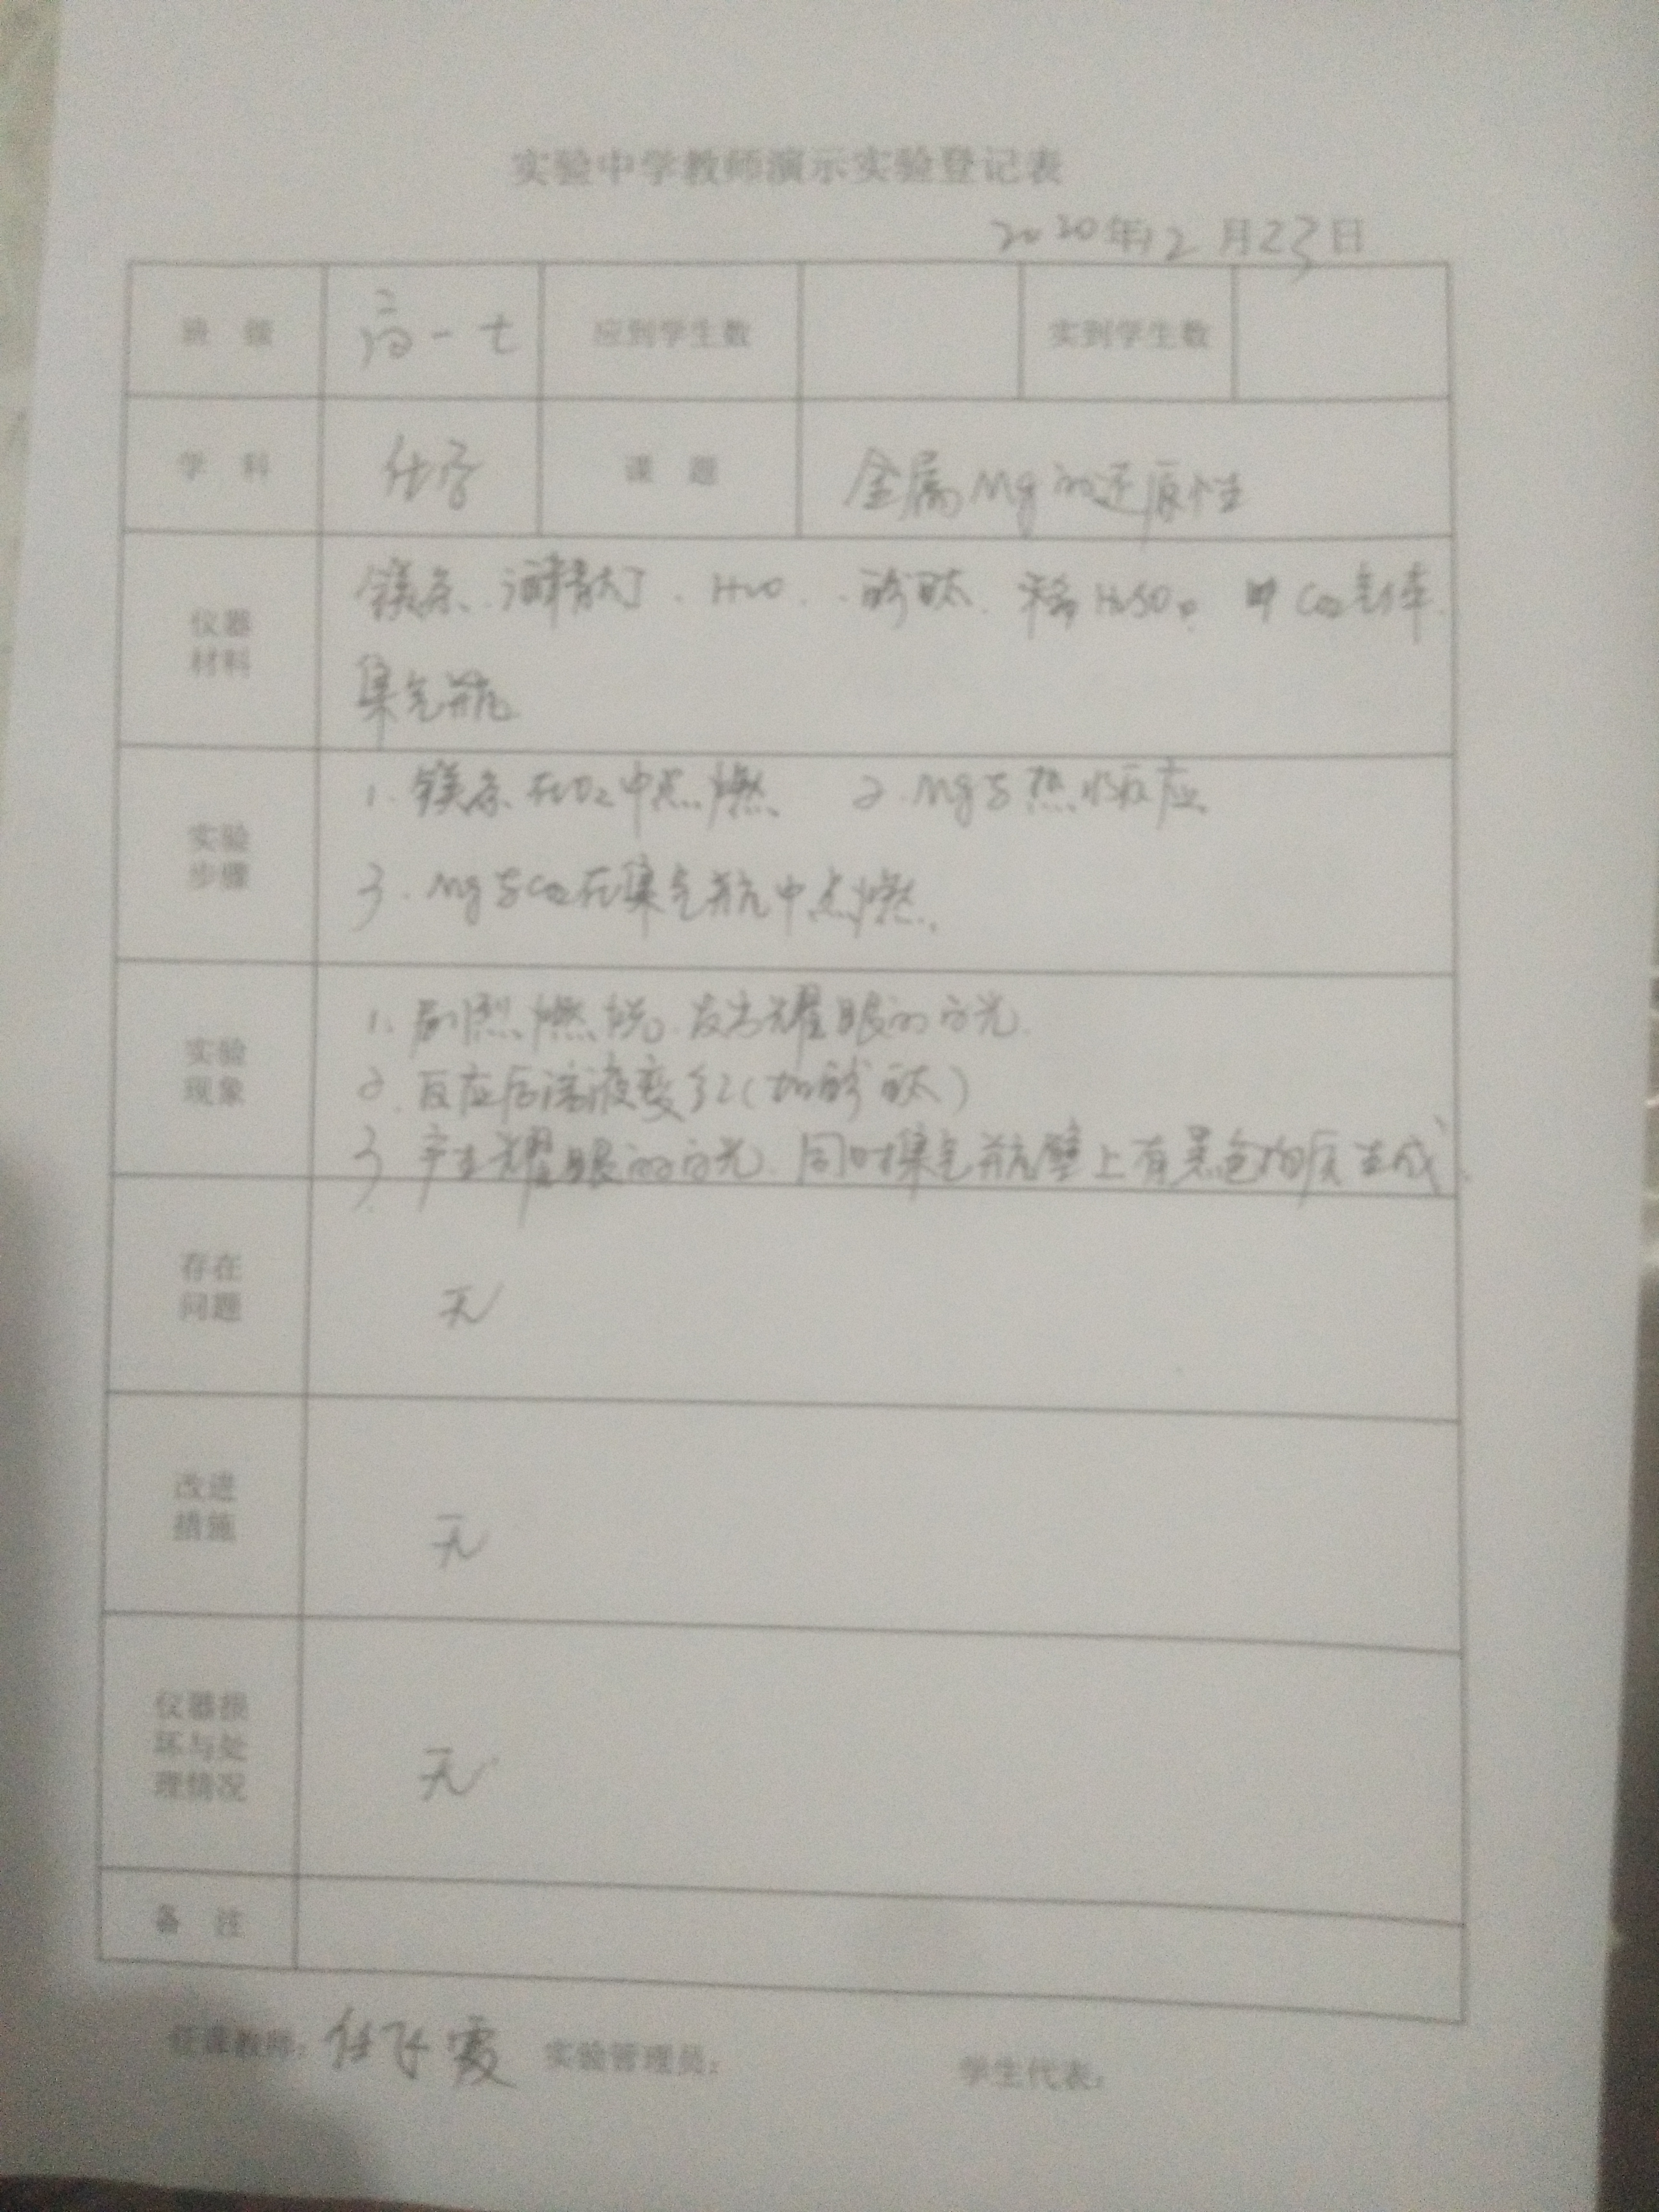 实验中学教师演示实验登记表
2020年12月23日
班 级 高一七 应到学生数 实到学生数
学 科 化学 课 题 金属Mg的还原性
仪器材料 镁条、酒精灯、H2O、酚酞、稀H2SO4 CO2气体
集气瓶
实验步骤 1.镁条在O2中点燃 2.Mg与热水反应
3.Mg与CO2在集气瓶中点燃.
实验现象 1.剧烈燃烧.发出耀眼的白光.
2.反应后溶液变红(加酚酞)
3.产生耀眼的白光.同时集气瓶壁上有黑色物质生成.
存在问题 无
改进措施 无
仪器损坏与处理情况 无
备 注
任课教师：任飞霞 实验管理员： 学生代表：